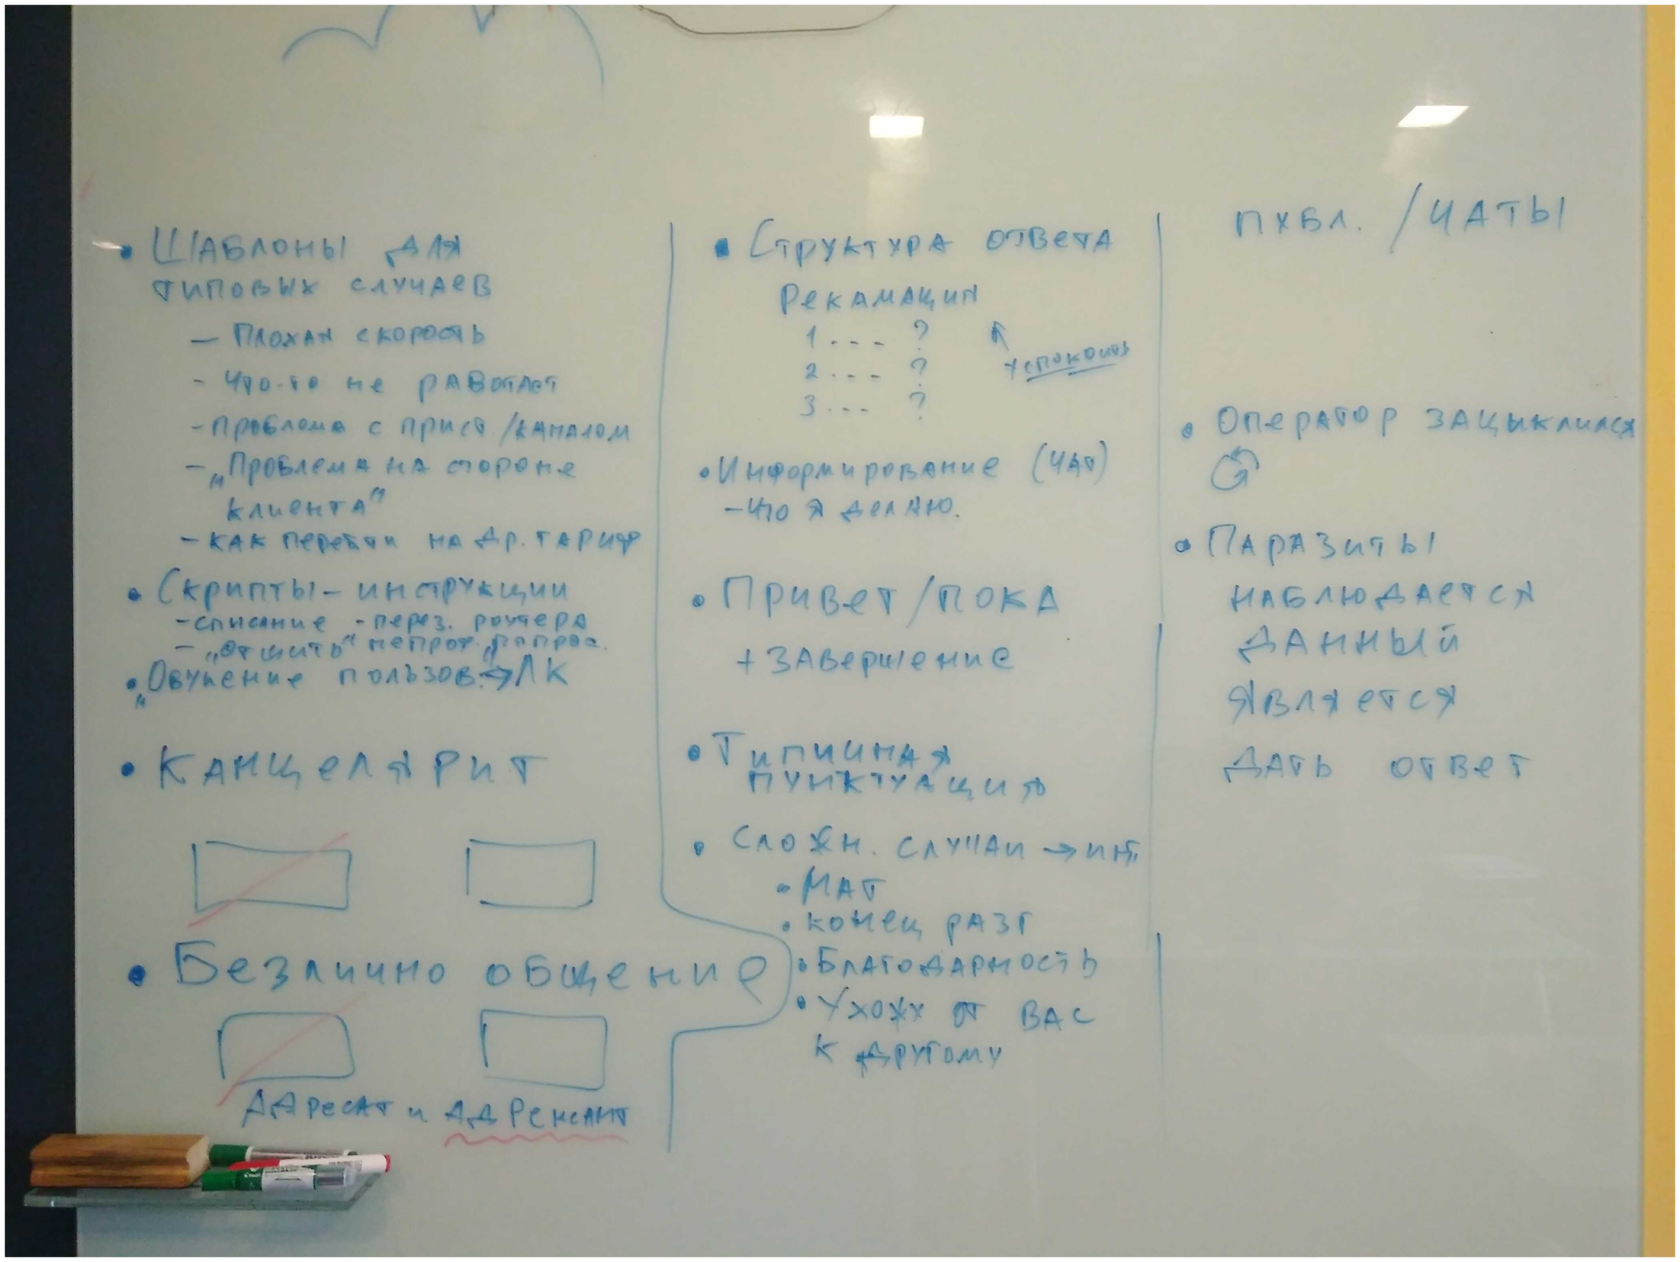 • Шаблоны для
типовых случаев
— Плохая скорость
- Что-то не работает
- Проблема с прист./каналом
- „Проблема на стороне
клиента"
- как перейти на др. тариф
• Скрипты – инструкции
- списание - перез. роутера
- „отшить" непроф. вопрос.
• „Обучение пользов." → ЛК
• Канцелярит
• Безлично общение
Адресат и адренсант
• Структура ответа
Рекамация
1 . - - - ?
2 . - - - ?
3 . - - - ?
успокоить
• Информирование (чат)
- что я делаю.
• Привет/пока
+ завершение
• Типичная
пунктуация
• Сложн. случаи → инт.
• Мат
• конец разг
• Благодарность
• Ухожу от вас
к другому
публ. / чаты
• Оператор зацыклился
• Паразиты
наблюдается
данный
является
дать ответ